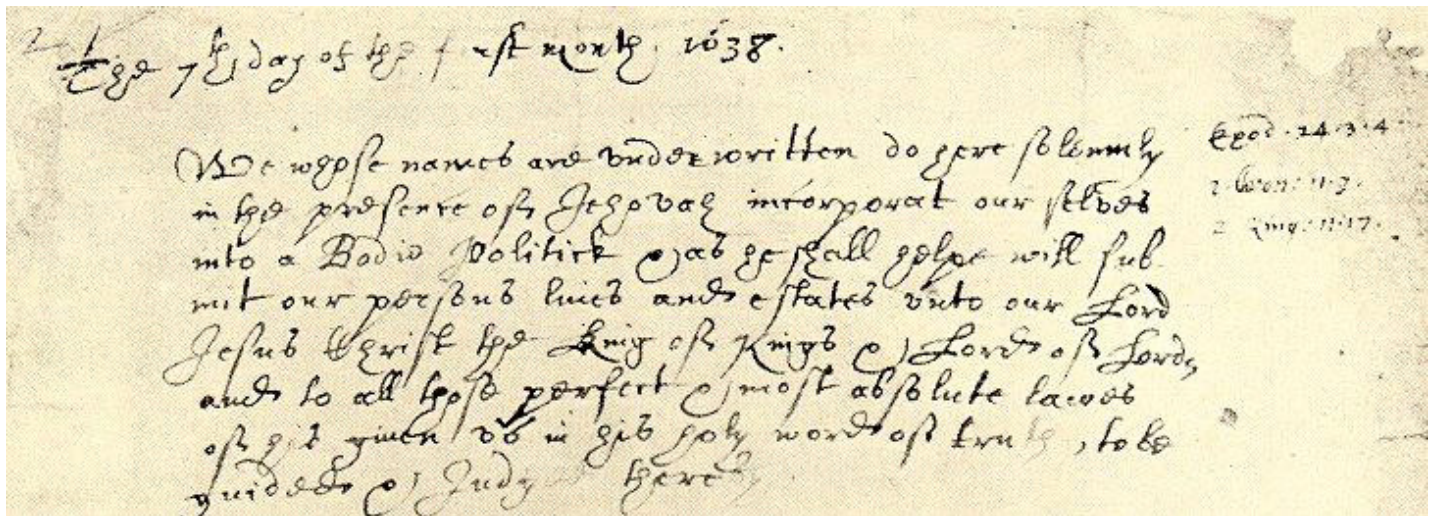 The 7th day of the first month. 1638.
We whose names are vnderwritten do here solemnly
in the presence of Jehovah incorporat our selves
into a Bodie Politick & as he shall helpe will sub
mit our persons lives and estates vnto our Lord
Jesus Christ the King of Kings & Lord of Lords
and to all those perfect & most absolute lawes
of his given vs in his holy word of truth, to be
guided & Judged thereby.
Exod. 24.3.4
2 Cron: 11.3.
2 King: 11:17.